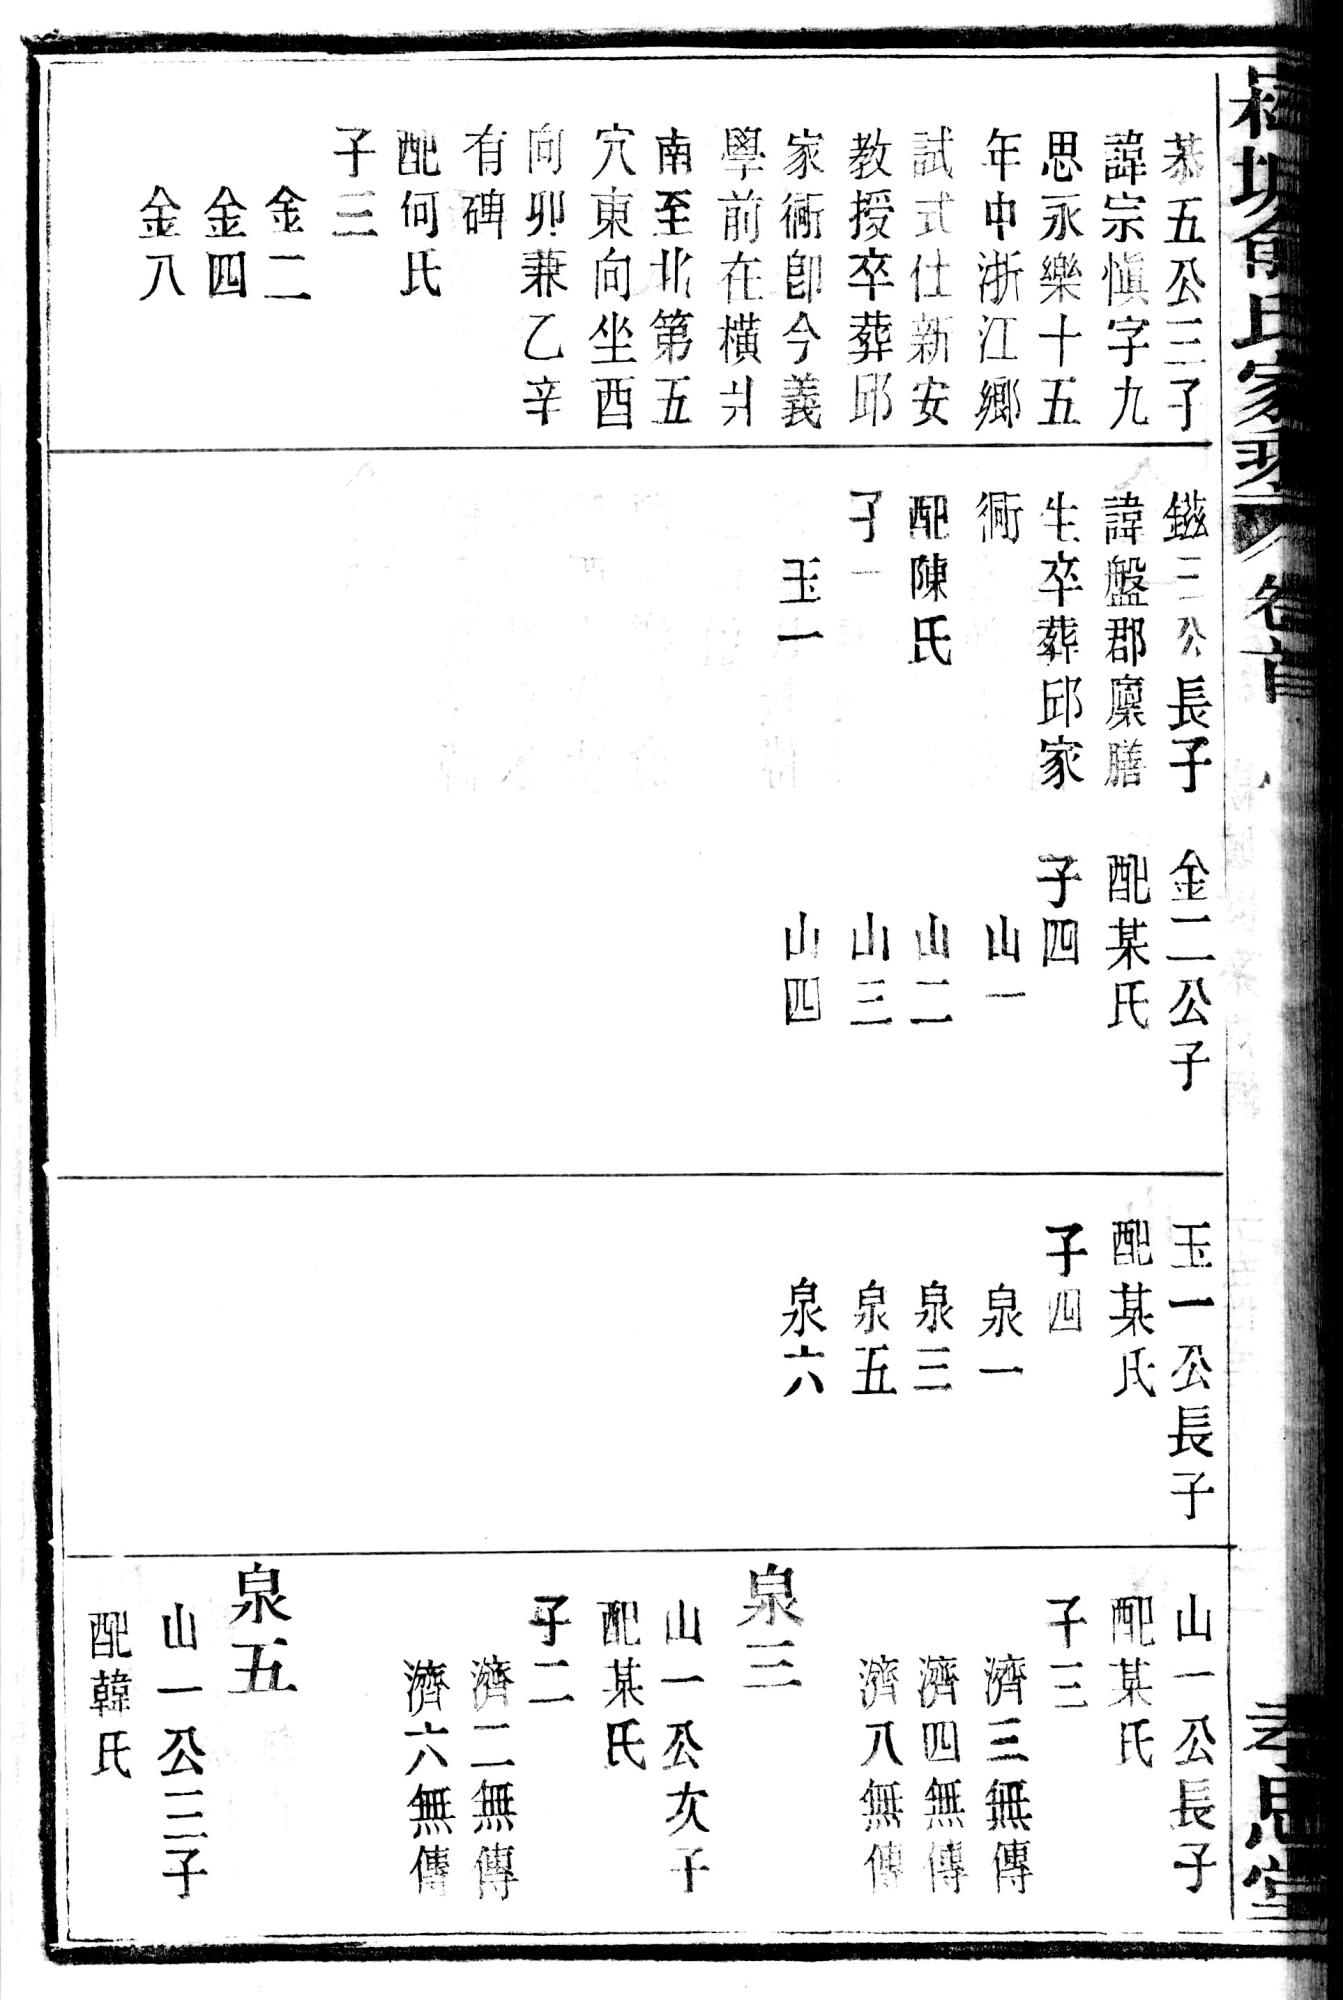 恭五公三子
諱宗愼字九
思永樂十五
年中浙江鄉
試式仕新安
教授卒葬邱
家衕卽今義
學前在橫爿
南至北第五
穴東向坐酉
向卯兼乙辛
有碑
配何氏
子三
金二
金四
金八
鎡三公長子
諱盤郡廩膳
生卒葬邱家
衕
配陳氏
子一
玉一
金二公子
配某氏
子四
山一
山二
山三
山四
玉一公長子
配某氏
子四
泉一
泉三
泉五
泉六
山一公長子
配某氏
子三
濟三無傳
濟四無傳
濟八無傳
泉三
山一公次子
配某氏
子二
濟二無傳
濟六無傳
泉五
山一公三子
配韓氏
氏家
卷首
孝思堂